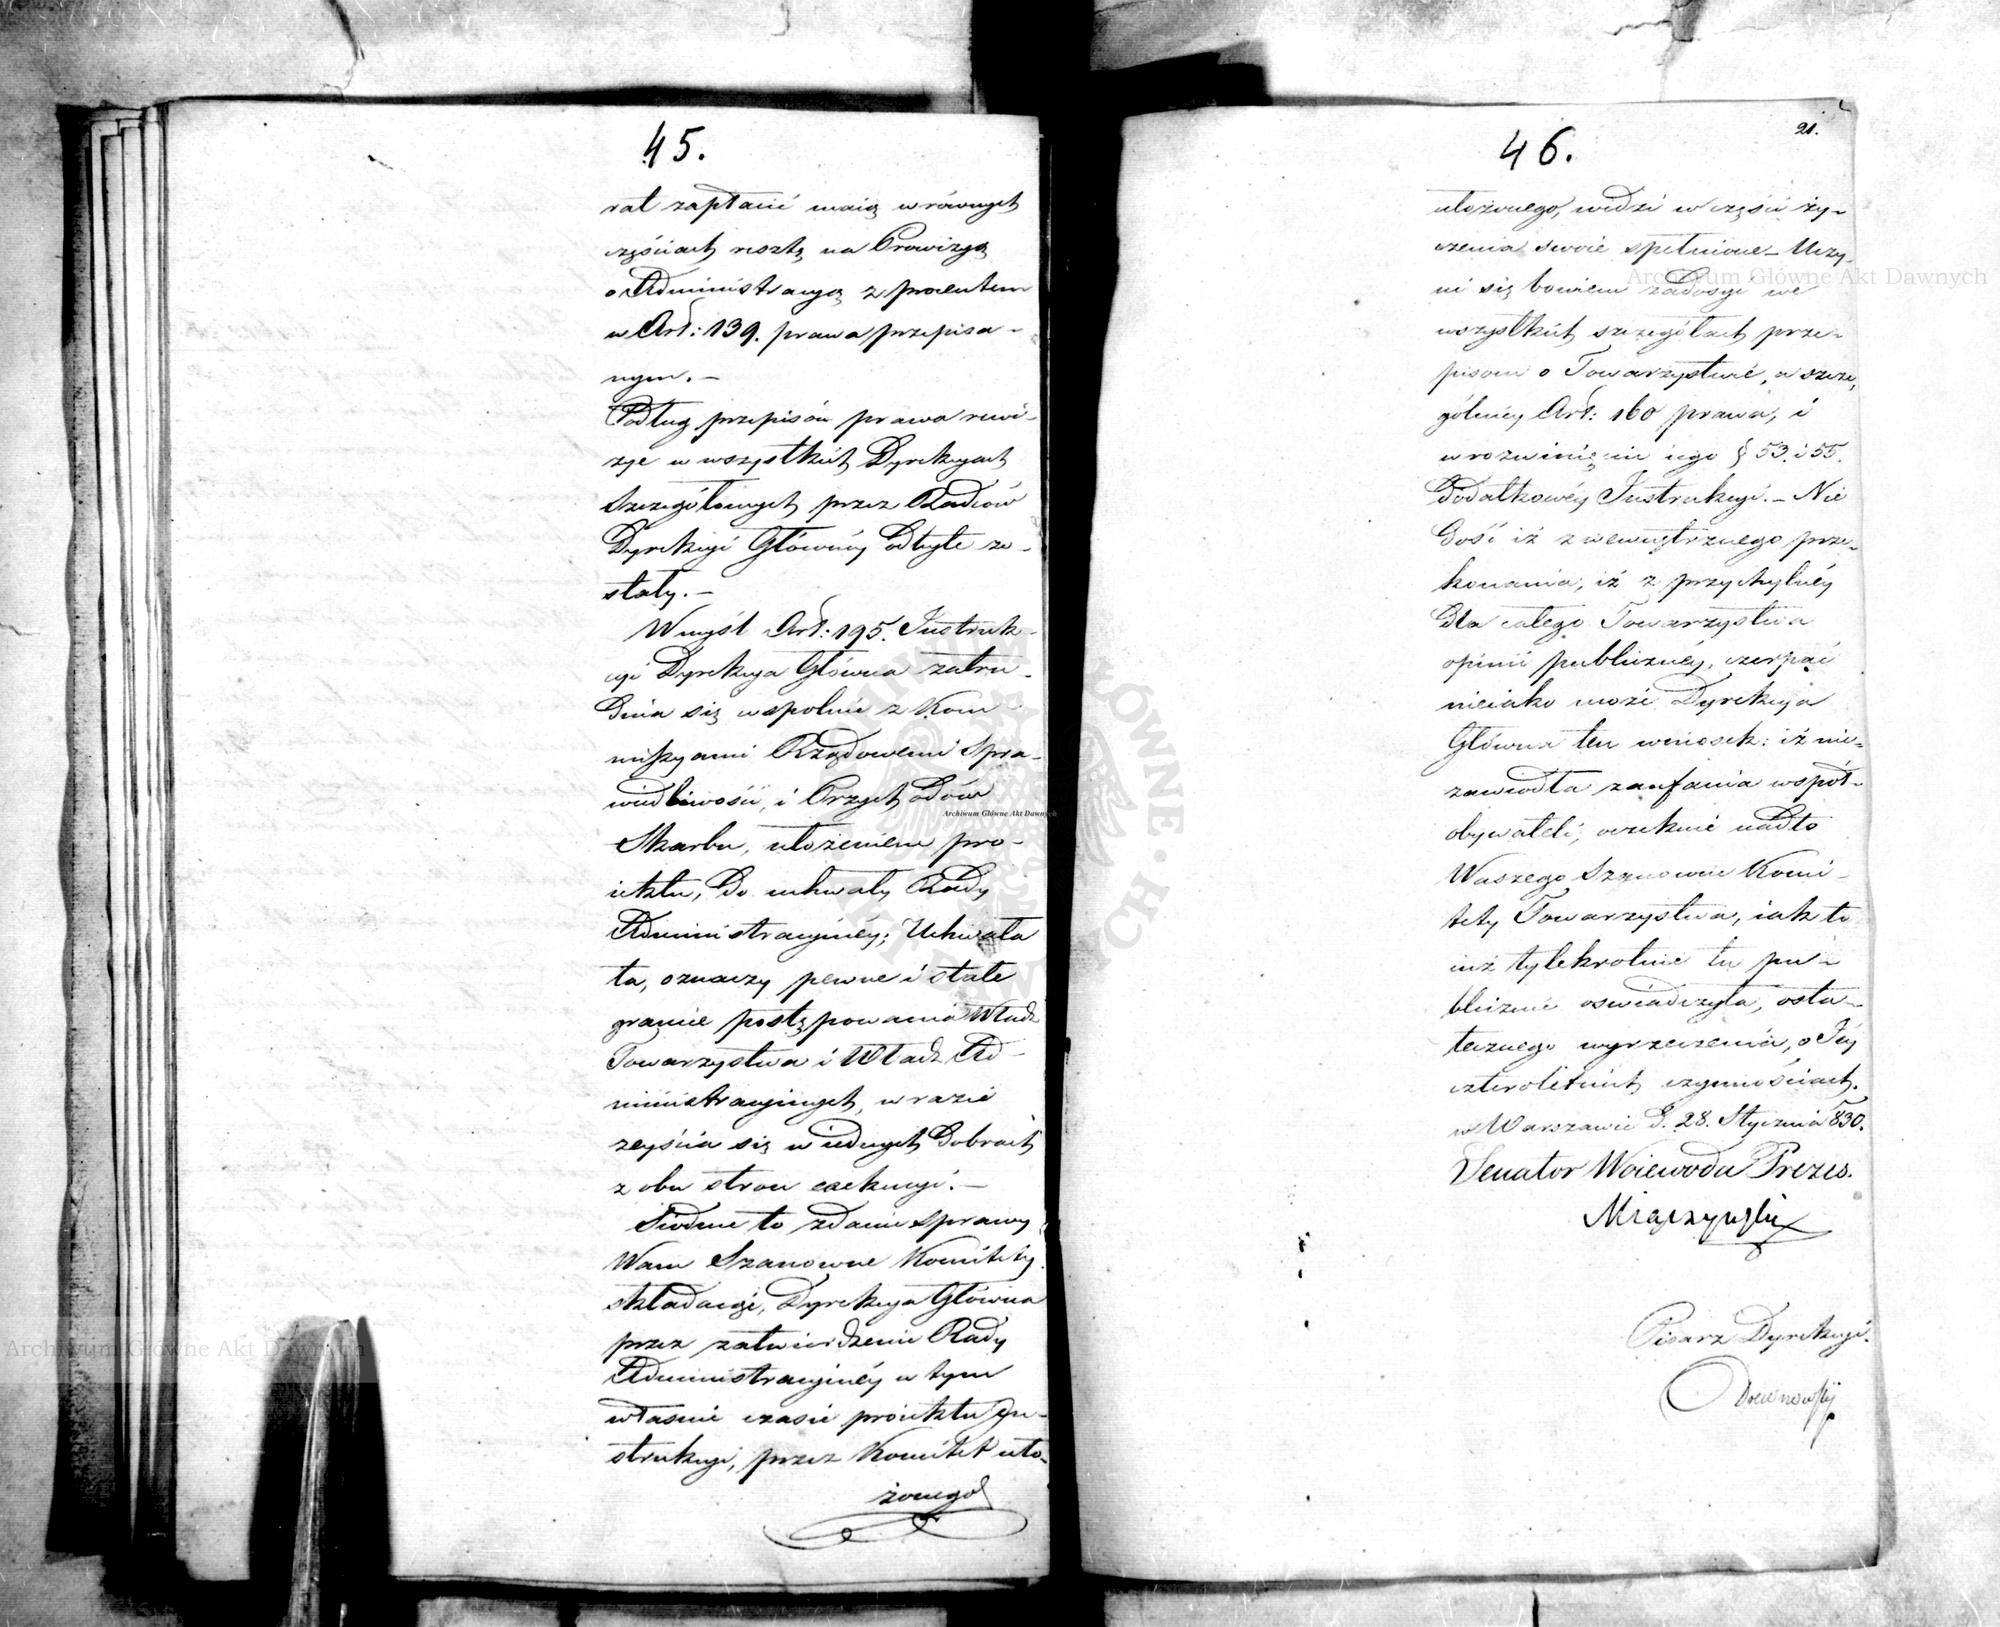 45.
rat zapłacić maią w równych
częściach resztę na Prowizyą
o Administracyą z procentem
w Art: 139. prawa przepisa-
nym.—
Podług przepisów prawa rewi-
zye w wszystkich Dyrekcyach
Szczegółowych przez Radców
Dyrekcyi Głównéy odbyte zo-
stały.—
W myśl Art: 195. Instruk-
cyi Dyrekcya Główna zatru-
dnia się wspólnie z Kom-
missyami Rządowemi Spra-
wiedliwości, i Przychodów
Skarbu, ułożeniem pro-
iektu, do uchwały Rady
Administracyinéy; Uchwała
ta, oznaczy pewne i stałe
granice postępowania Władz
Towarzystwa i Władz Ad-
ministracyinych, w razie
zeyścia się w iednych dobrach
z obu stron exekucyi.—
Siódme to zdanie sprawy
Wam Szanowne Komitety
składaiąc, Dyrekcya Główna
przez zatwierdzenie Rady
Administracyinéy w tym
właśnie czasie proiektu In-
strukcyi, przez Komitet uło-
żonego
46.
21.
ułożonego, widzi w części ży-
czenia swoie spełnione— Uczy-
ni się bowiem zadosyć we
wszystkich szczegółach prze-
pisom o Towarzystwie, a szcze,
gólniéy Art: 160 prawa, i
w rozwinięciu iego § 53. i 55.
dodatkowéy Instrukcyi.— Nie
dość iż z wewnętrznego prze-
konania, iż z przychylnéy
dla całego Towarzystwa
opinii publicznéy, czerpać
nieiako może Dyrekcya
Główna ten wniosek: iż nie-
zawiodła zaufania współ-
obywateli; oczekuie nadto
Waszego Szanowne Komi-
tety Towarzystwa, iak to
iuż tylekrotnie tu pu-
blicznie oświadczyła, osta-
tecznego wyrzeczenia, o Jéy
czteroletnich czynnościach.
w Warszawie d. 28. Stycznia 830.
Senator Woiewoda Prezes.
Miączyński
Pisarz Dyrekcyi.
Drewnowski
Archiwum Główne Akt Dawnych
Archiwum Główne Akt Dawnych
Archiwum Główne Akt Dawnych